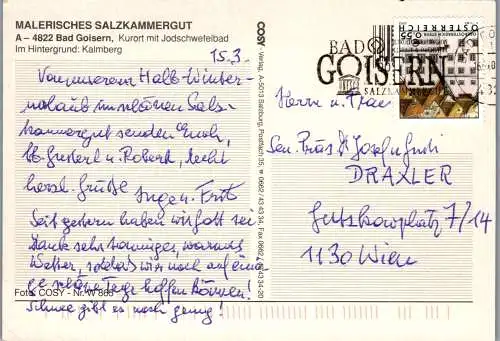 MALERISCHES SALZKAMMERGUT
A – 4822 Bad Goisern, Kurort mit Jodschwefelbad
Im Hintergrund: Kalmberg
15.3.
Von unserem Halb-Winter-
urlaub im schönen Salz-
kammergut senden Euch,
lb. Greterl u. Robert, recht
herzl. Grüße
Erit
Seit gestern haben wir Gott sei
Dank sehr sonniges, warmes
Wetter, sodaß wir noch auf eini-
ge schöne Tage hoffen können!
Schnee gibt es noch genug!
Foto: COSY - Nr. W 860
COSY - Verlag, A-5013 Salzburg, Postfach 35, ☎ 0662 / 43 43 34, Fax 0662 / 43 43 34-20
BAD
GOISERN
SALZKAMMERGUT
0,55
ÖSTERREICH
Herrn u. Frau
Sen. Präs. Dr. Josef u.
DRAXLER
platz 7/14
1130 Wien